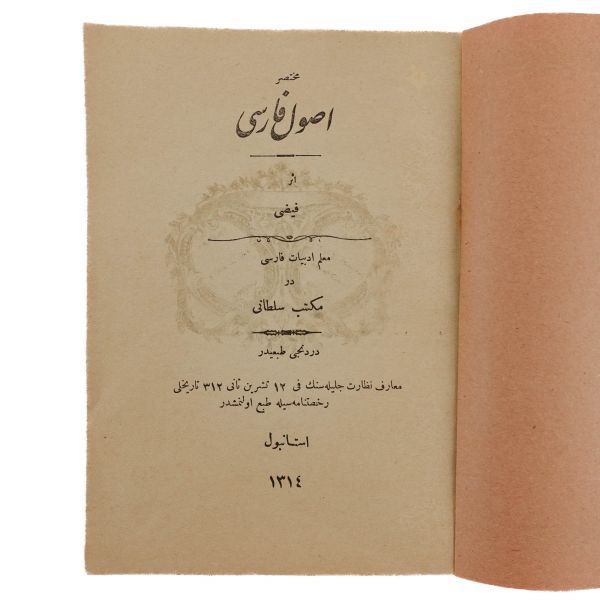 مختصر
اصول فارسی
اثر
فیضی
معلم ادبیات فارسی
در
مكتب سلطانی
دردنجی طبعیدر
معارف نظارت جلیله‌سنك فی ١٢ تشرین ثانی ٣١٢ تاریخلی
رخصتنامه‌سیله طبع اولنمشدر
استانبول
١٣١٤